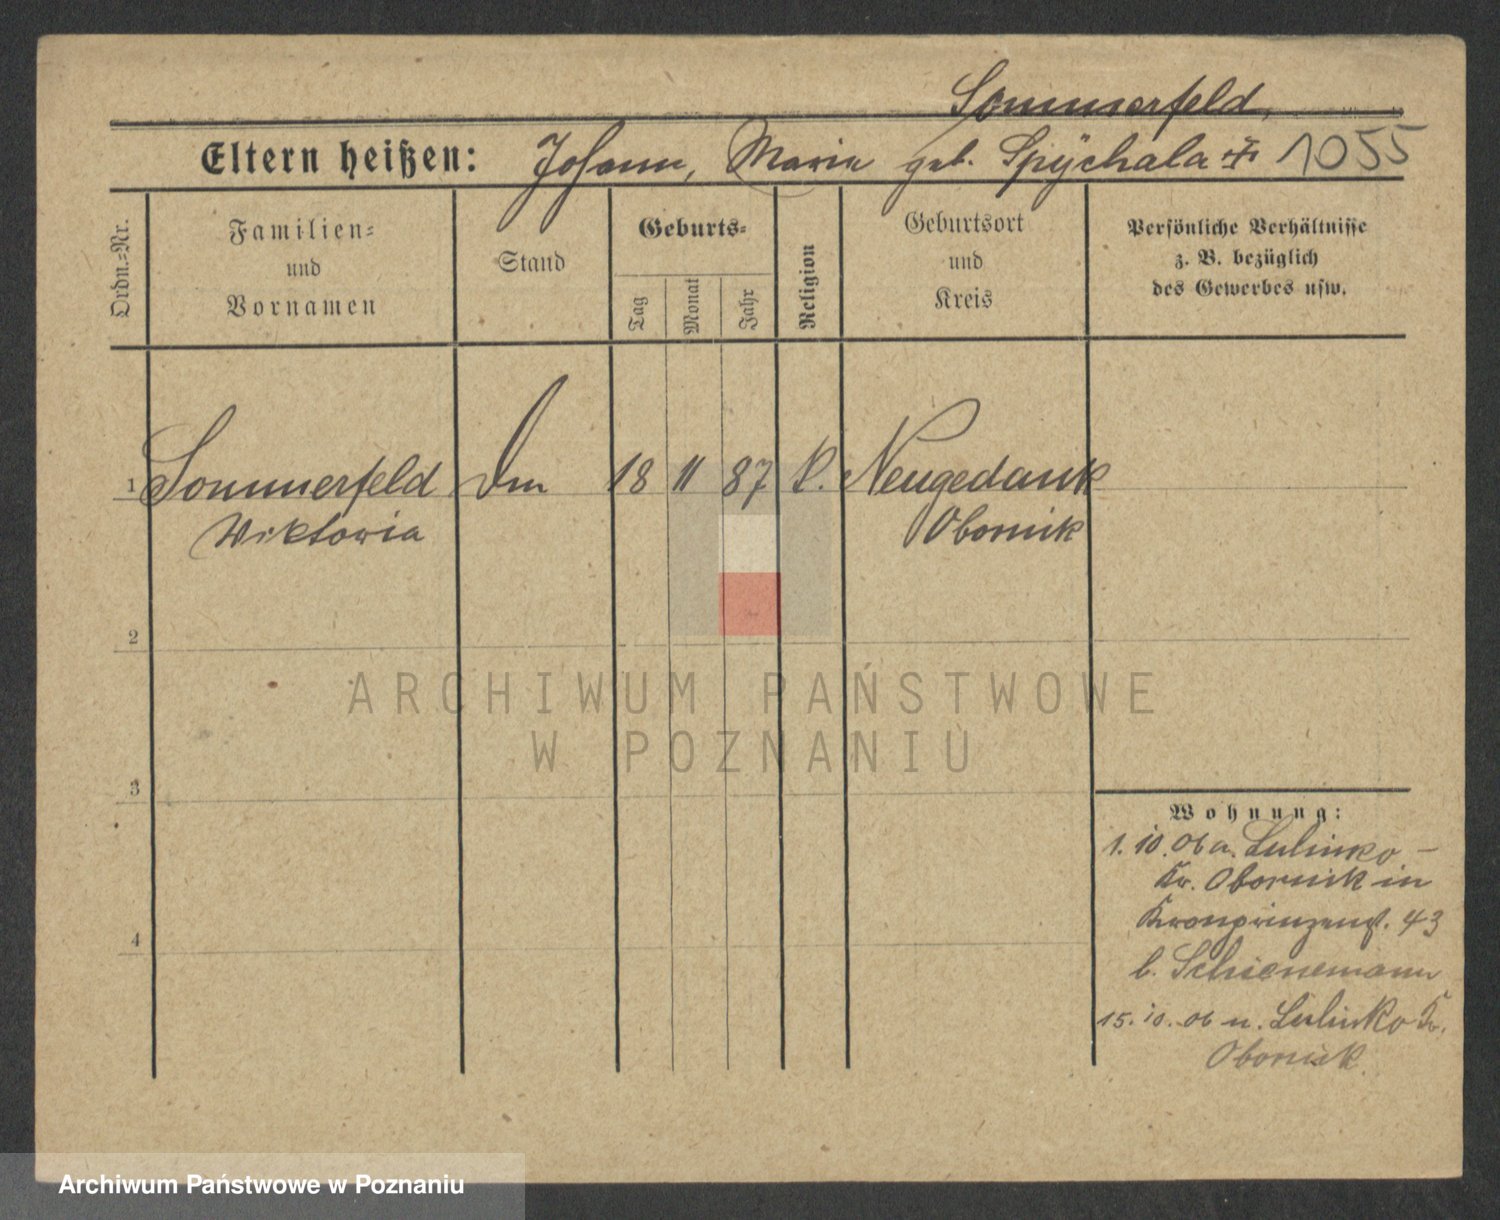 Sommerfeld,
Eltern heißen: Johann, Maria geb. Spÿchala 1055
Ordn.-Nr.
Familien-
und
Vornamen
Stand
Geburts-
Tag
Monat
Jahr
Religion
Geburtsort
und
Kreis
Persönliche Verhältnisse
z. B. bezüglich
des Gewerbes usw.
1 Sommerfeld Dm 18 11 87 k. Neugedank
Wiktoria Obornik
2
3
4
Wohnung:
1. 10. 06 a. Lulinko –
Kr. Obornik in
Kronprinzenst. 43
b. Schienemann
15. 10. 06 n. Lulinko Kr.
Obornik
ARCHIWUM PAŃSTWOWE
W POZNANIU
Archiwum Państwowe w Poznaniu